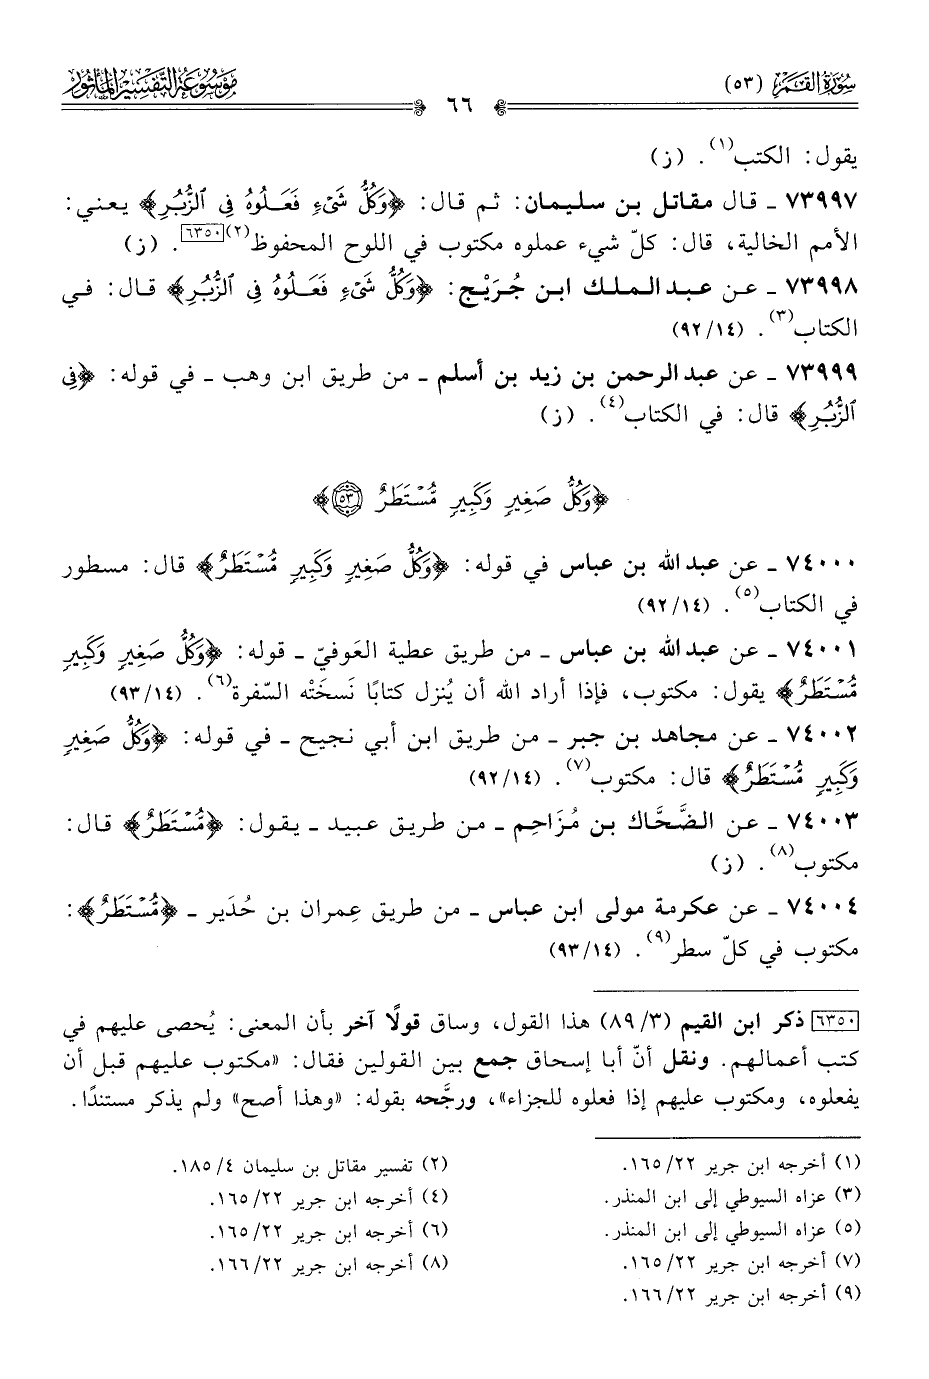 سُورَةُ القَمَر (٥٣)
٦٦
مَوْسُوعَة التَّفْسِير المَأثُور
يقول: الكتب(١). (ز)
٧٣٩٩٧ ـ قال مقاتل بن سليمان: ثم قال: ﴿وَكُلُّ شَيْءٍ فَعَلُوهُ فِي ٱلزُّبُرِ﴾ يعني:
الأمم الخالية، قال: كلّ شيء عملوه مكتوب في اللوح المحفوظ(٢)[٦٣٥٠]. (ز)
٧٣٩٩٨ ـ عن عبد الملك ابن جُرَيْج: ﴿وَكُلُّ شَيْءٍ فَعَلُوهُ فِي ٱلزُّبُرِ﴾ قال: في
الكتاب(٣). (١٤/٩٢)
٧٣٩٩٩ ـ عن عبد الرحمن بن زيد بن أسلم ـ من طريق ابن وهب ـ في قوله: ﴿فِي
ٱلزُّبُرِ﴾ قال: في الكتاب(٤). (ز)
﴿وَكُلُّ صَغِيرٍ وَكَبِيرٍ مُّسْتَطَرٌ ٥٣﴾
٧٤٠٠٠ ـ عن عبد الله بن عباس في قوله: ﴿وَكُلُّ صَغِيرٍ وَكَبِيرٍ مُّسْتَطَرٌ﴾ قال: مسطور
في الكتاب(٥). (١٤/٩٢)
٧٤٠٠١ ـ عن عبد الله بن عباس ـ من طريق عطية العَوفيّ ـ قوله: ﴿وَكُلُّ صَغِيرٍ وَكَبِيرٍ
مُّسْتَطَرٌ﴾ يقول: مكتوب، فإذا أراد الله أن يُنزل كتابًا نَسخَتْه السّفرة(٦). (١٤/٩٣)
٧٤٠٠٢ ـ عن مجاهد بن جبر ـ من طريق ابن أبي نجيح ـ في قوله: ﴿وَكُلُّ صَغِيرٍ
وَكَبِيرٍ مُّسْتَطَرٌ﴾ قال: مكتوب(٧). (١٤/٩٢)
٧٤٠٠٣ ـ عن الضَّحَّاك بن مُزَاحِم ـ من طريق عبيد ـ يقول: ﴿مُّسْتَطَرٌ﴾ قال:
مكتوب(٨). (ز)
٧٤٠٠٤ ـ عن عكرمة مولى ابن عباس ـ من طريق عِمران بن حُدَير ـ ﴿مُّسْتَطَرٌ﴾:
مكتوب في كلّ سطر(٩). (١٤/٩٣)
[٦٣٥٠] ذكر ابن القيم (٣/٨٩) هذا القول، وساق قولًا آخر بأن المعنى: يُحصى عليهم في
كتب أعمالهم. ونقل أنّ أبا إسحاق جمع بين القولين فقال: «مكتوب عليهم قبل أن
يفعلوه، ومكتوب عليهم إذا فعلوه للجزاء»، ورجَّحه بقوله: «وهذا أصح» ولم يذكر مستندًا.
(١) أخرجه ابن جرير ٢٢/١٦٥.
(٢) تفسير مقاتل بن سليمان ٤/١٨٥.
(٣) عزاه السيوطي إلى ابن المنذر.
(٤) أخرجه ابن جرير ٢٢/١٦٥.
(٥) عزاه السيوطي إلى ابن المنذر.
(٦) أخرجه ابن جرير ٢٢/١٦٥.
(٧) أخرجه ابن جرير ٢٢/١٦٥.
(٨) أخرجه ابن جرير ٢٢/١٦٦.
(٩) أخرجه ابن جرير ٢٢/١٦٦.